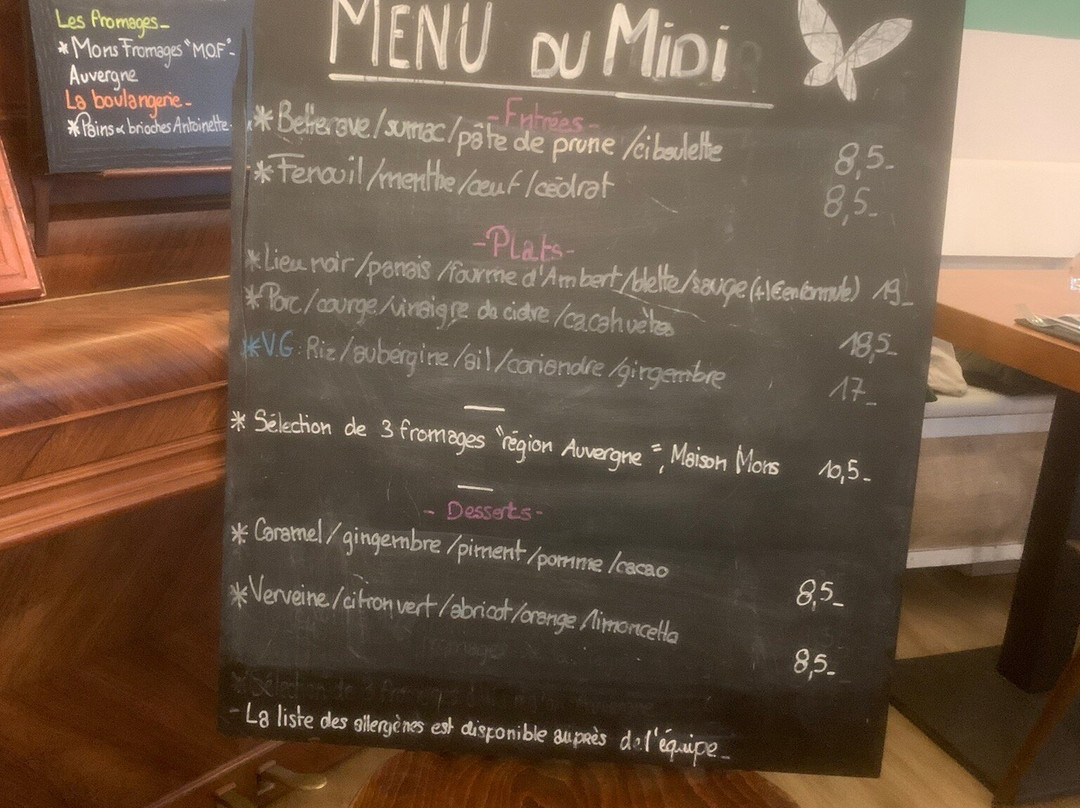 Les fromages-
* Mons Fromages "M.O.F"-
Auvergne
La boulangerie-
* Pains & brioches Antoinette-
MENU DU MiDi
-Entrées-
* Betterave/sumac/pâte de prune/ciboulette 8,5-
* Fenouil/menthe/œuf/cédrat 8,5-
-Plats-
* Lieu noir/panais/fourme d'Ambert/blette/sauge (+1€ en formule) 19-
* Porc/courge/vinaigre de cidre/cacahuètes 18,5-
* V.G: Riz/aubergine/ail/coriandre/gingembre 17-
* Sélection de 3 fromages "région Auvergne", Maison Mons 10,5-
- Desserts-
* Caramel/gingembre/piment/pomme/cacao 8,5-
* Verveine/citron vert/abricot/orange/limoncello 8,5-
- La liste des allergènes est disponible auprès de l'équipe-